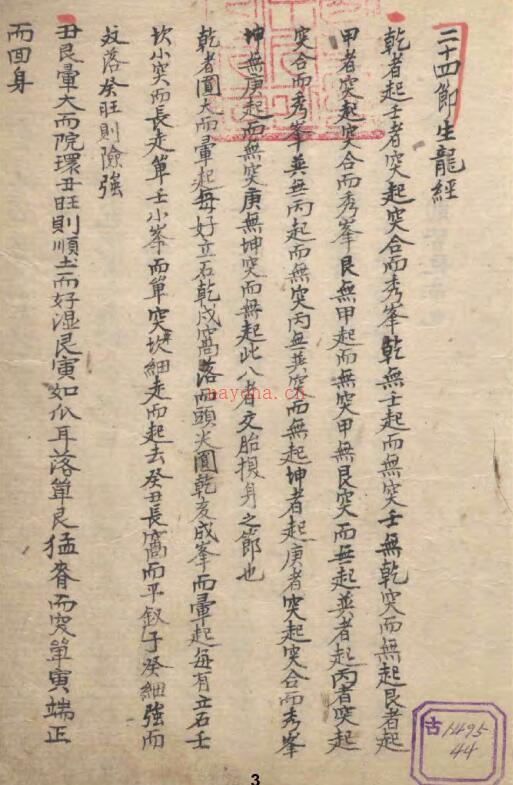 二十四節生龍經
乾者起壬者突起突合而秀峯乾無壬起而無突壬無乾突而無起艮者起
甲者突起突合而秀峯艮無甲起而無突甲無艮突而無起巽者起丙者突起
突合而秀峯巽無丙起而無突丙無巽突而無起坤者起庚者突起突合而秀峯
坤無庚起而無突庚無坤突而無起此八者交胎換身之節也
乾者圓大而暈起每好立石乾戌窩落而頭尖圓乾亥成峯而暈起每有立石壬
坎小突而長走單壬小峯而單突坎細走而起去癸丑長窩而平釵子癸細強而
落癸旺則險強
丑艮暈大而院環丑旺則順土而好湿艮寅如爪耳落單艮猛脊而突單寅端正
而回身
nayona.cn
古1495
44
3